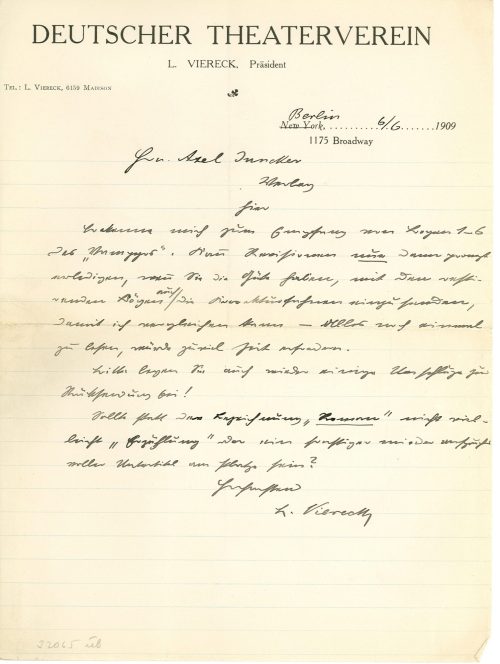 DEUTSCHER THEATERVEREIN
L. VIERECK, Präsident
TEL.: L. VIERECK, 6159 MADISON
Berlin
New York, 6/6 1909
1175 Broadway
Hrn. Axel Juncker
Verlag
hier
Bekenne mich zum Empfang von Bogen 1-6
des "Vampyrs". Kann Revisionen nur dann prompt
erledigen, wenn Sie die Güte haben, mit den resti-
renden Bögen auch die Korrekturfahnen einzusenden,
damit ich vergleichen kann — Alles noch einmal
zu lesen, würde zuviel Zeit erfordern.
Bitte legen Sie auch wieder einige Umschläge zur
Rücksendung bei!
Sollte statt der Bezeichnung "Roman" nicht viel-
leicht "Erzählung" oder ein sonstiger minder anspruchs-
voller Untertitel am Platze sein?
L. Viereck
32065